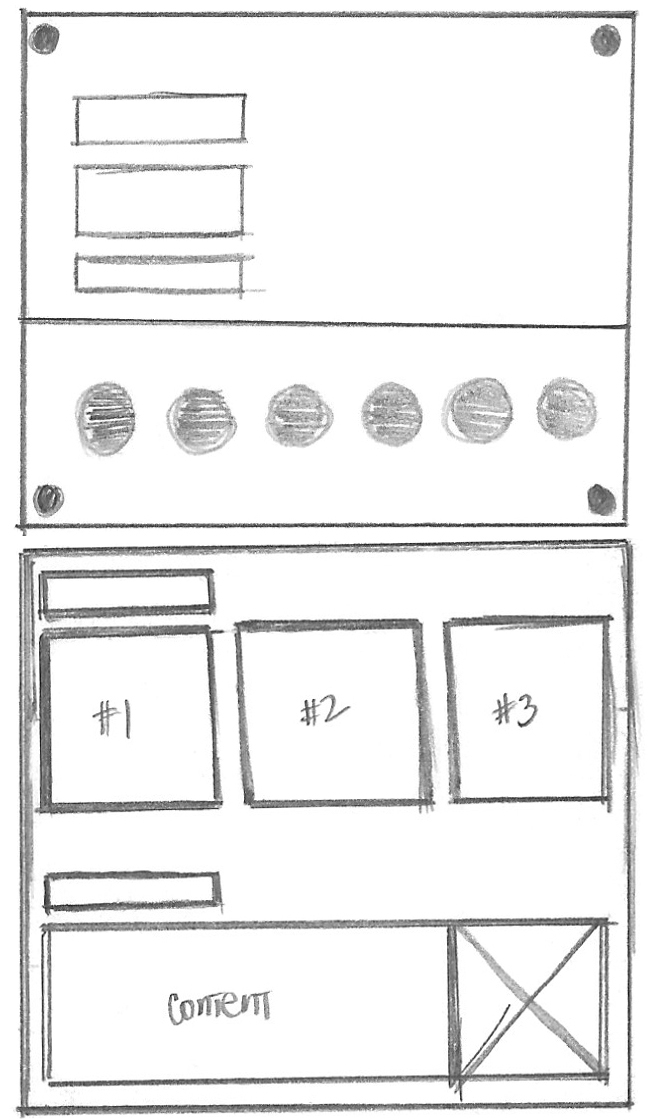 #1
#2
#3
Content